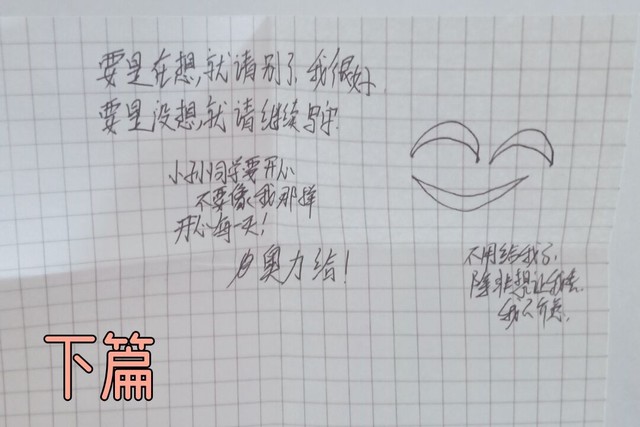 要是在想,就请别了,我很好.
要是没想,就请继续
小孙同学要开心
不要像我那样
开心每一天!
奥力给!
不用给我了,
除非想让我
我不介意.
下篇